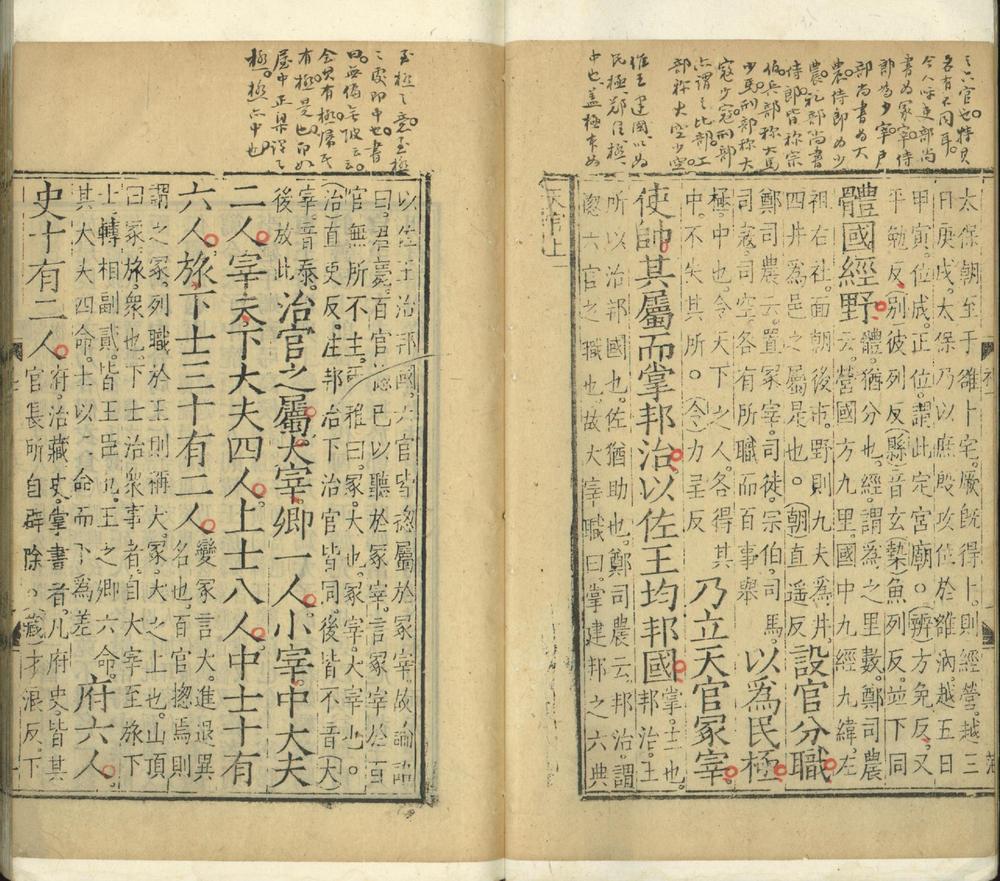 名有不同耳
今人呼吏部尚
書為冢宰侍
郎為少宰戶
部尚書為大
農侍郎為少
農禮部尚書
侍郎皆称宗
伯兵部称大馬
少馬刑部称大
寇少寇刑部
亦謂之比部工
部称大空少空
惟王建國以為
民極鄭注極
中也蓋極本如
太保朝至于雒卜宅。厥既得卜。則經營。越三
日庚戌。太保乃以庶殷攻位於雒汭。越五日
甲寅。位成。正位。謂此定宮廟。○辨方免反。又
平勉反。別彼列反。縣音玄。槷魚列反。並下同
體國經野。
體猶分也。經謂為之里數。鄭司農
云。營國方九里。國中九經九緯。左
祖右社。面朝後市。野則九夫為井。
四井為邑之屬是也。○朝直遥反
設官分職
鄭司農云。置冢宰。司徒。宗伯。司馬。
司寇。司空。各有所職而百事舉
以為民極。
極。中也。令天下之人各得其
中。不失其所。○令力呈反
乃立天官冢宰。
使帥其屬而掌邦治。以佐王均邦國。
掌。主也。邦治。王
所以治邦國也。佐猶助也。鄭司農云。邦治。謂
總六官之職也。故大宰職曰。掌建邦之六典
天官上
玉極之意玉極
之處即中也書
曰無偏無陂云云
會其有極歸其
有極是也即如
屋中正梁謂之
極極亦中也
以佐王治邦國。六官皆總屬於冢宰。故論語
曰。君薨。百官總已以聽於冢宰。言冢宰於百
官無所不主。爾雅曰。冢。大也。冢宰。大宰也。○
治直吏反。注邦治下治官皆同。後皆不音。大
宰。音泰。
後放此
治官之屬。大宰。卿一人。小宰。中大夫
二人。宰夫。下大夫四人。上士八人。中士十有
六人。旅下士三十有二人。
變冢言大。進退異
名也。百官總焉則
謂之冢。列職於王則稱大。冢。大之上也。山頂
曰冢。旅。衆也。下士治衆事者。自大宰至旅下
士。轉相副貳。皆王臣也。王之卿六命。
其大夫四命。士以三命而下為差
府六人。
史十有二人。
府。治藏。史。掌書者。凡府史。皆其
官長所自辟除。○藏才浪反。下